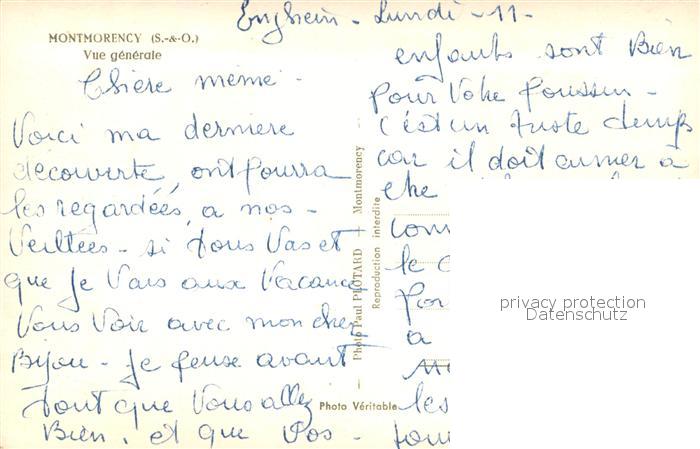 Enghein - Lundi - 11 -
MONTMORENCY (S.-&-O.)
Vue générale
Chère mémé -
Voici ma derniere
découverte, ont pourra
les regardées, a nos -
Veillées - si tous Vas et
que je Vais aux Vacances
Vous Voir avec mon cher
Bijou - Je pense avant
tout que Vous allez
Bien, et que Vos -
enfants sont Bien
pour Votre poussin -
c'est un juste temps
car il doit aimer à
etre
com
le
pou
a
les
tou
Photo Paul PROTARD - Montmorency
Reproduction interdite
Photo Véritable
privacy protection
Datenschutz